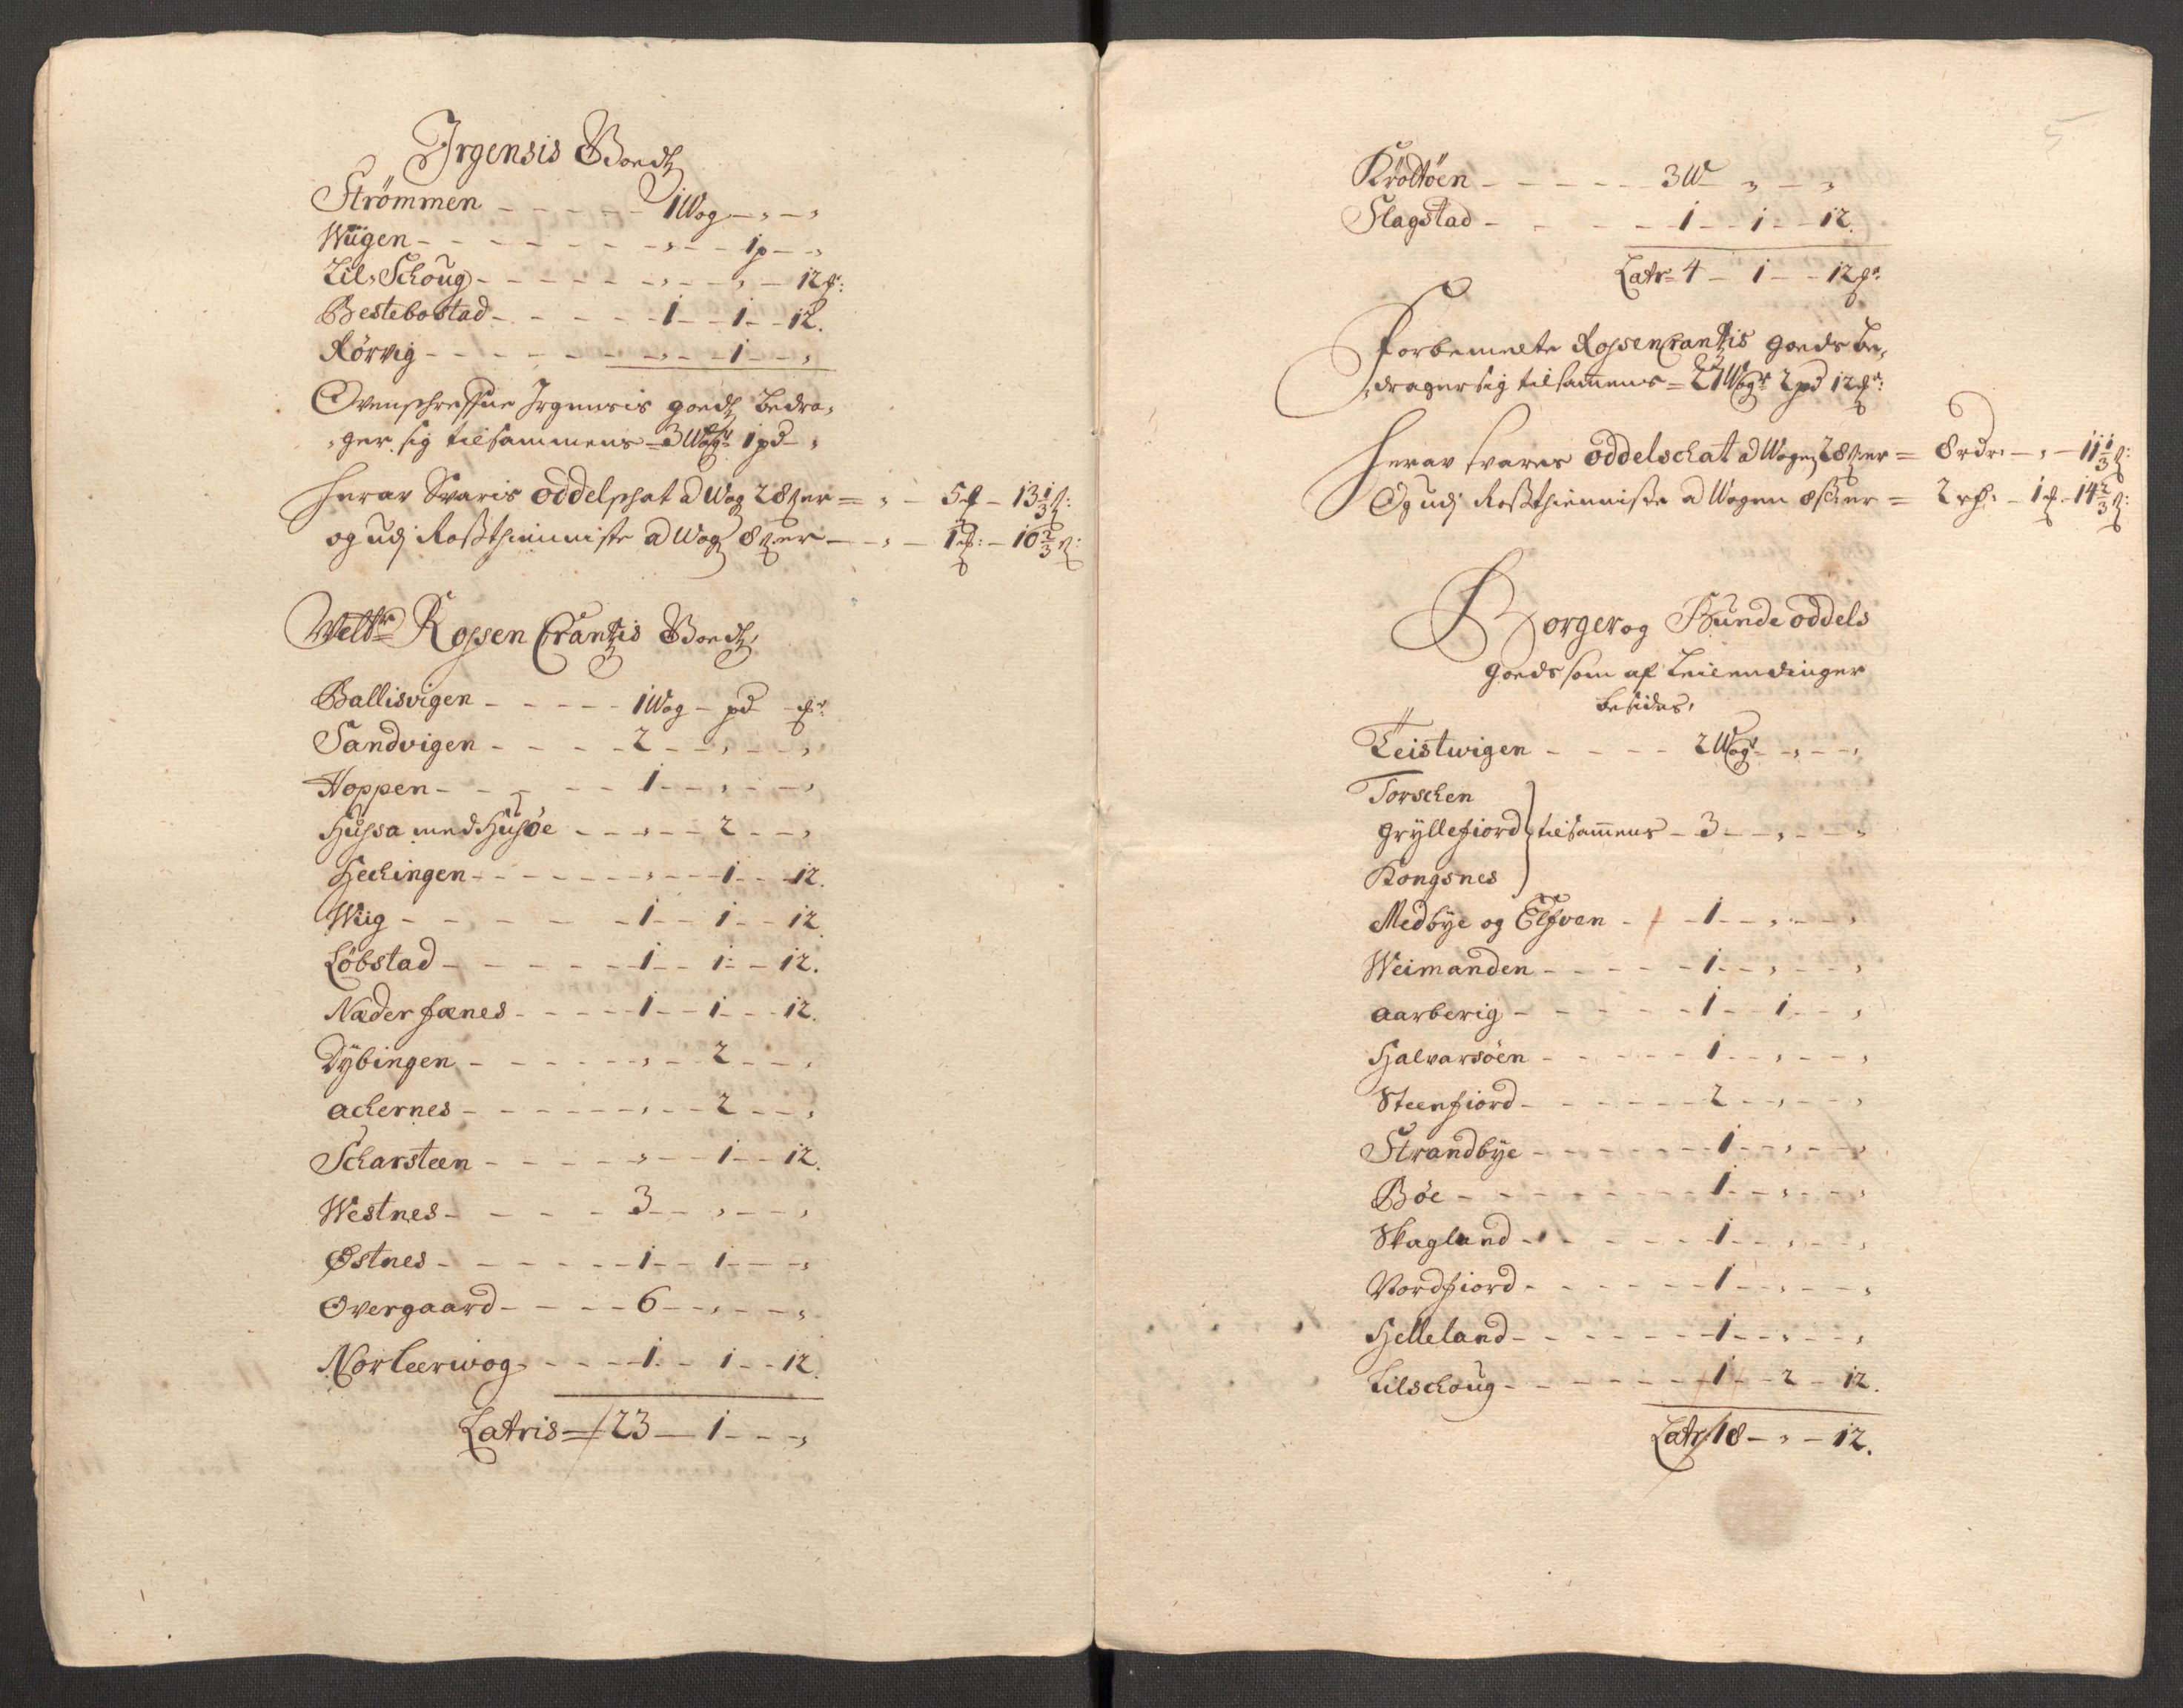 Irgensis Goedtz
Strömmen - - - - - 1 Wog - , - ,
Wiigen - - - - - - - , - - 1 p - - ,
Lil, Schoug - - - - - - , - - , - 12 ℔:
Bestebostad - - - - - 1 - - 1 - - 12.
Rörvig - - - - - - - , - - 1 - - ,
Ovenschrefne Irgensis goedtz bedra,
,ger sig tilsammens - 3 Wogr 1 pd - ,
Herav Svaris oddelschat a Wog 28 ser = , - 5 ℔ - 13 1/3 s:
og udj Rosthienniste a Wog 8 ser - - , - 1 ℔: - 10 2/3 s:
Welbr Rosen Crantzis Goedtz,
Ballisvigen - - - - - 1 Wog - pd - ℔r
Sandvigen - - - - 2 - - , - - ,
Hoppen - - - - - 1 - - , - - ,
Hussa med Husöe - - , - - 2 - - ,
Hechingen - - - - - - , - - 1 - - 12.
Wiig - - - - - - 1 - - 1 - - 12
Löbstad - - - - - - 1 - - 1 - - 12.
Nederfænes - - - - 1 - - 1 - - 12.
Dybingen - - - - - , - - 2 - - ,
Achernes - - - - - - , - - 2 - - ,
Scharsteen - - - - - , - - 1 - - 12.
Westnes - - - - 3 - - , - - ,
Østnes - - - - - - 1 - - 1 - - ,
Overgaard - - - - 6 - - , - - ,
Norleerwog - - - - 1 - - 1 - - 12.
Latris = 23 - 1 - - ,
5
Kröttöen - - - - - 3 W - , - ,
Slagstad - - - - 1 - - 1 - - 12.
Latr = 4 - 1 - - 12 ℔r
Forbemelte Rosencrantzis goeds be,
,drager sig tilsamens = 27 Wogr 2 pd 12 ℔r:
Herav svares oddelschat a Wogen 28 ser = 8 rdr - , - 11 1/3 s:
Og udj Rosthienniste a Wogen 8 ser = 2 rdr - 1 ℔ - 14 2/3 s:
Borger og Bunde oddels
goeds som af Leilendinger
besides,
Teistwigen - - - - 2 Wogr - , - - ,
Torschen
Gryllefiord tilsamens - 3 - - , - - ,
Kongsnes
Medbye og Elfven - - 1 - - , - - ,
Weimanden - - - - - 1 - - , - - ,
Aarberig - - - - - 1 - - 1 - - ,
Halvarsöen - - - - - 1 - - , - - ,
Steenfiord - - - - - - 2 - - , - - ,
Strandbye - - - - - - 1 - - , - - ,
Böe - - - - - - - - 1 - - , - - ,
Skagland - - - - - - 1 - - , - - ,
Nordfiord - - - - - - 1 - - , - - ,
Helleland - - - - - - 1 - - , - - ,
Lilschoug - - - - - - 1 - - 2 - 12.
Latr 18 - , - 12.